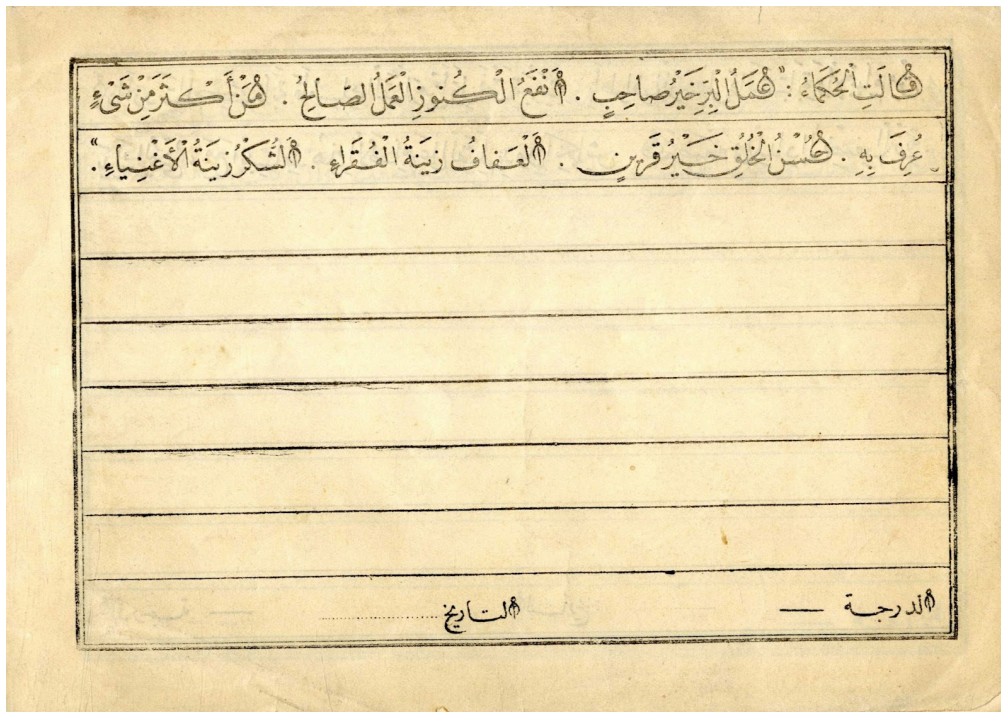 قَالَتِ الْحُكَمَاءُ : "عَمَلُ الْبِرِّ خَيْرُ صَاحِبٍ . أَنْفَعُ الْكُنُوزِ الْعَمَلُ الصَّالِحُ . مَنْ أَكْثَرَ مِنْ شَيْءٍ
عُرِفَ بِهِ . حُسْنُ الْخُلُقِ خَيْرُ قَرِينٍ . أَلْعَفَافُ زِينَةُ الْفُقَرَاءِ . أَلشُّكْرُ زِينَةُ الْأَغْنِيَاءِ" .
الدرجة — التاريخ ....................